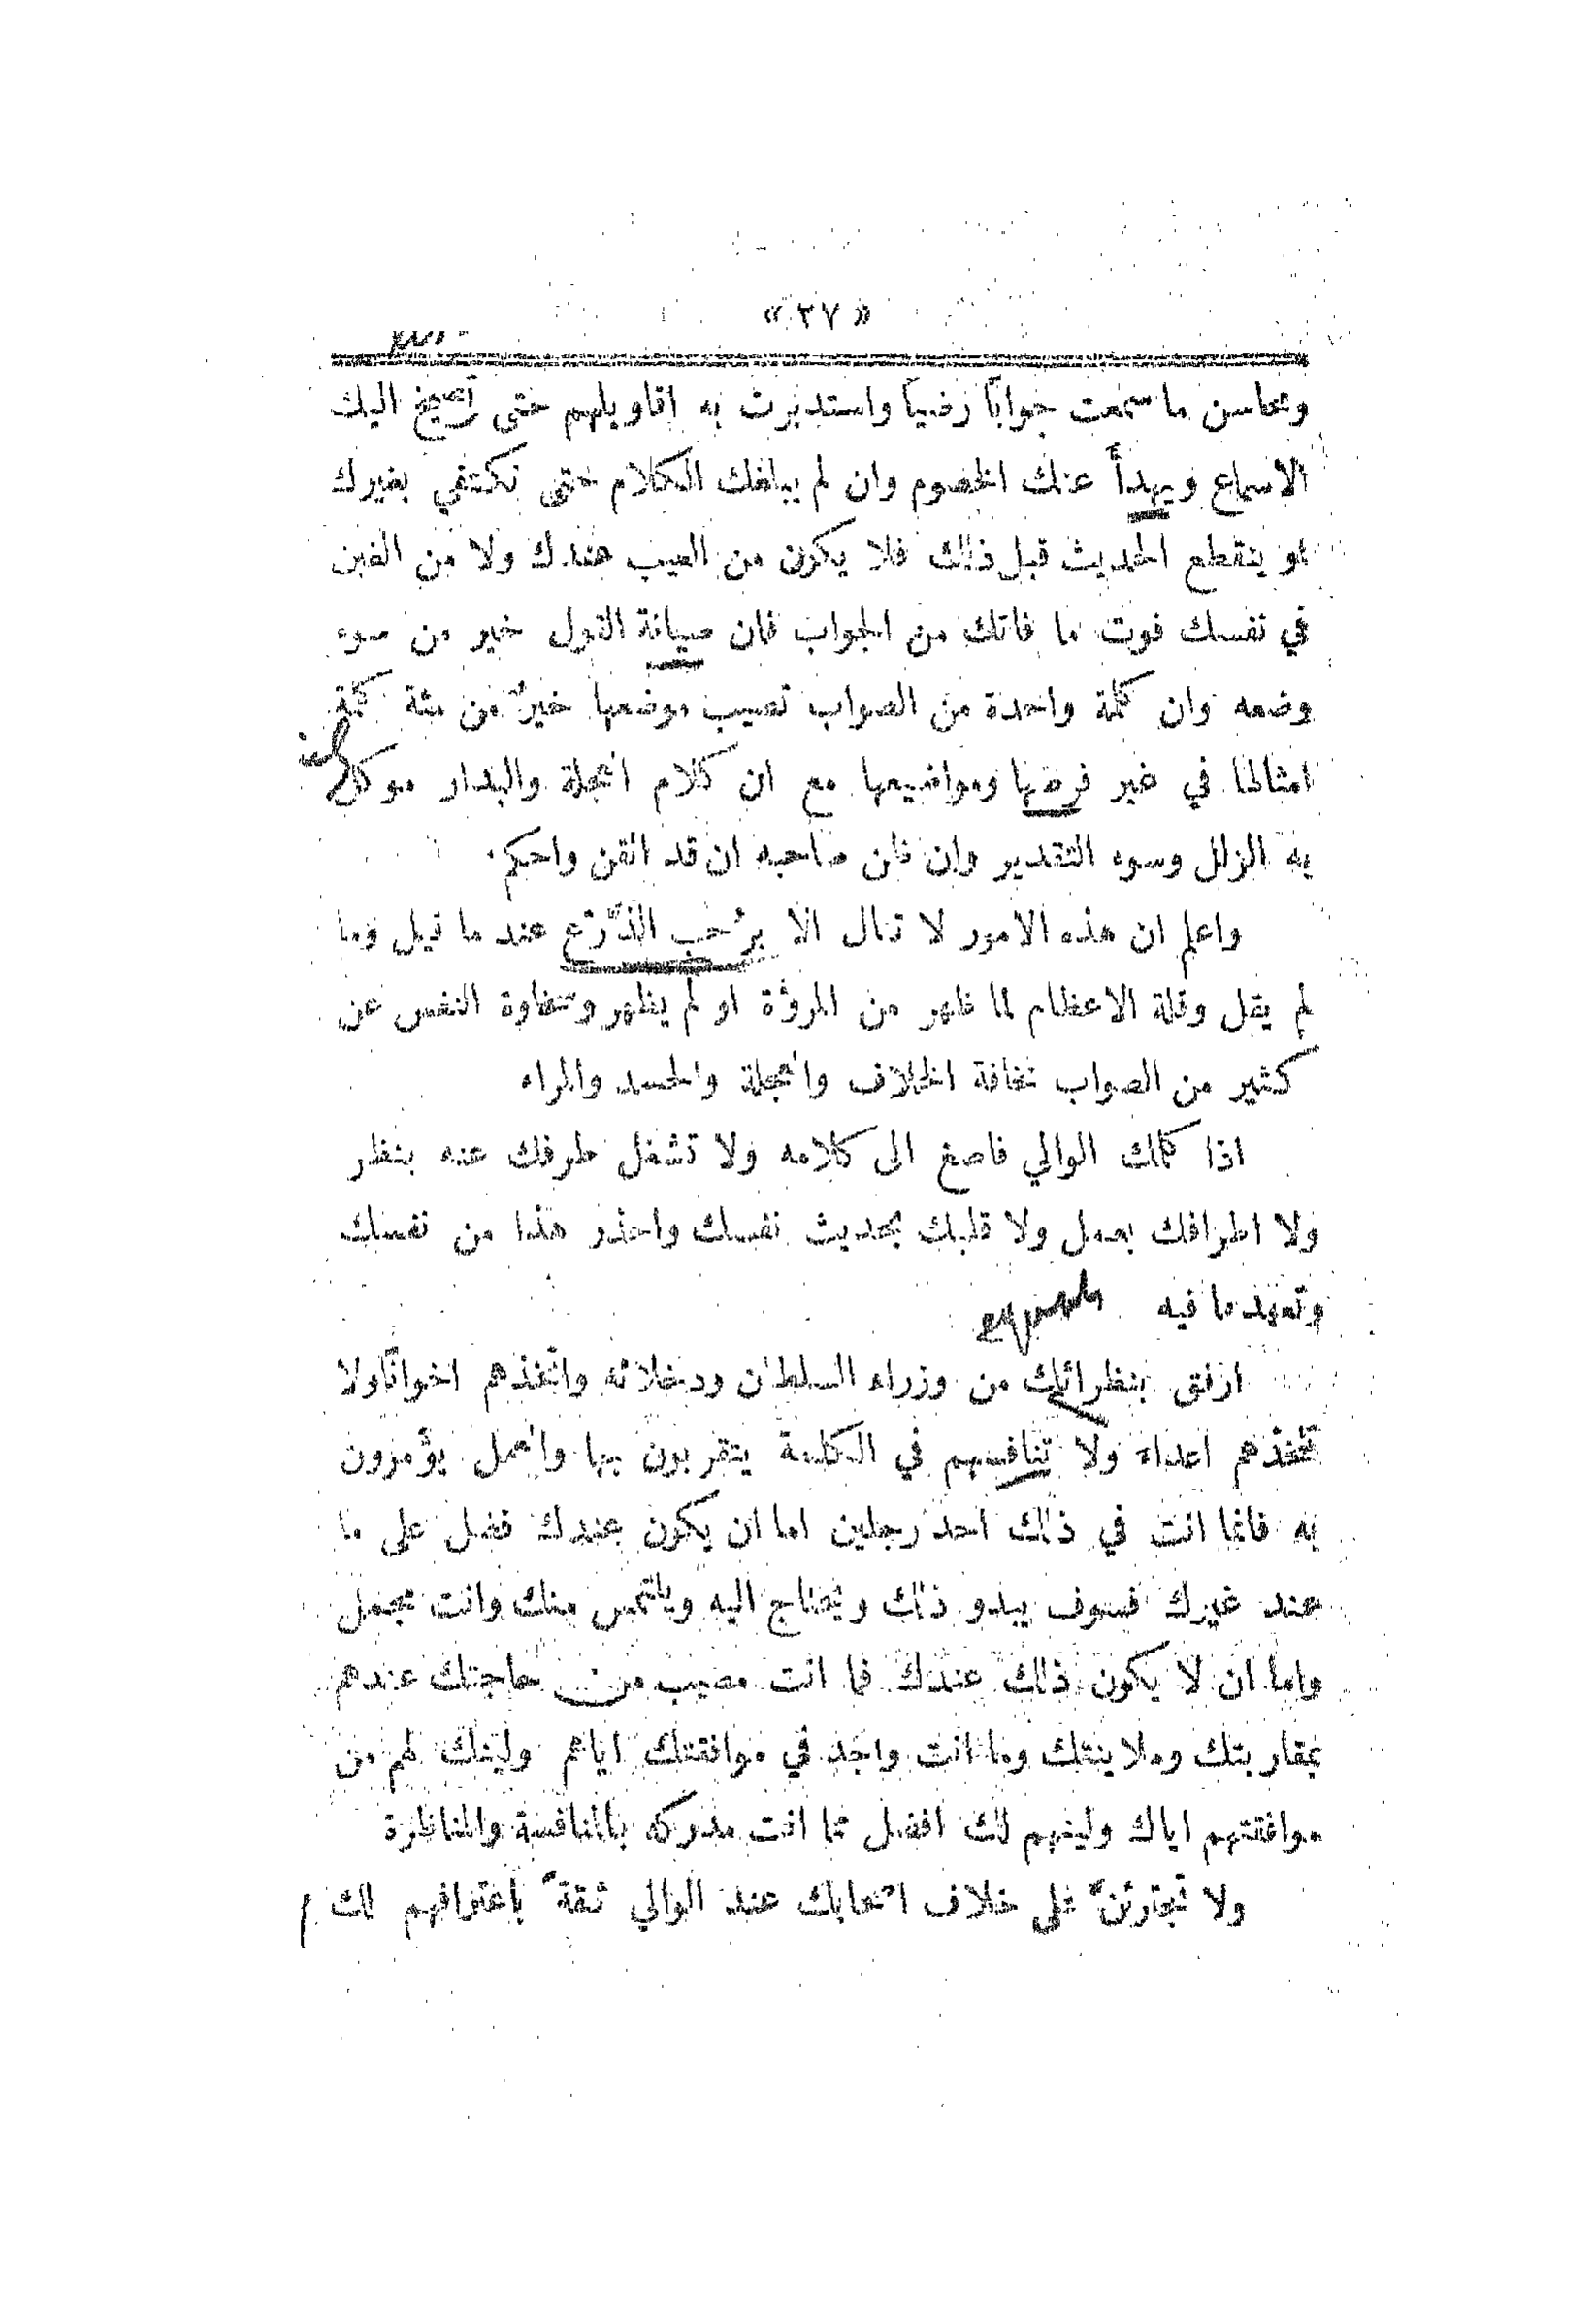 « ٣٧ »
ومحاسن ما سمعت جوابًا رضيًا واستدبرت به اقاويلهم حتى تصيخ اليك
الاسماع ويهدأ عنك الخصوم وان لم يبلغك الكلام حتى تكتفي بغيرك
او ينقطع الحديث قبل ذلك فلا يكون من العيب عندك ولا من الغبن
في نفسك فوت ما فاتك من الجواب فان صيانة القول خير من سوء
وضعه وان كلمة واحدة من الصواب تصيب موضعها خيرٌ من مئة كلمة
امثالها في غير فرصها ومواضيعها مع ان كلام العجلة والبدار موكل
به الزلل وسوء التقدير وان ظن صاحبه ان قد اتقن واحكم.
واعلم ان هذه الامور لا تنال الا برُحب الذَّرْع عند ما قيل وما
لم يقل وقلة الاعظام لما ظهر من المروُّة او لم يظهر وسخاوة النفس عن
كثير من الصواب مخافة الخلاف والعجلة والحسد والمراء
اذا كلمك الوالي فاصغ الى كلامه ولا تشغل طرفك عنه بنظر
ولا اطرافك بعمل ولا قلبك بحديث نفسك واحذر هذا من نفسك
وتعهد ما فيه
ارفق بنظرائك من وزراء السلطان ودخلائه واتخذهم اخوانًا ولا
تتخذهم اعداء ولا تنافسهم في الكلمة يتقربون بها والعمل يؤمرون
به فانما انت في ذلك احد رجلين اما ان يكون عندك فضل على ما
عند غيرك فسوف يبدو ذلك ويحتاج اليه ويلتمس منك وانت مجمل
واما ان لا يكون ذلك عندك فما انت مصيب من حاجتك عندهم
بمقاربتك وملاينتك وما انت واجد في موافقتك اياهم ولينك لهم من
موافقتهم اياك ولينهم لك افضل مما انت مدركه بالمنافسة والمناظرة
ولا تجترئنَّ على خلاف اصحابك عند الوالي ثقةً باعترافهم لك